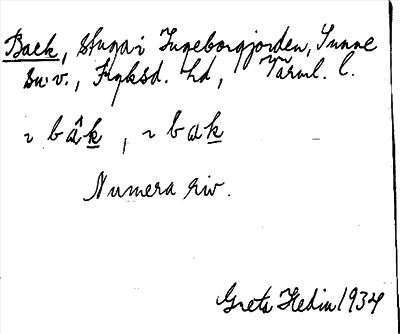 Back, stuga i Ingeborgjorden, Sunne
sn v., Fryksd. hd, Värml. l.
ɿ bâk, ɿ bak
Numera riv.
Greta Hedin 1934